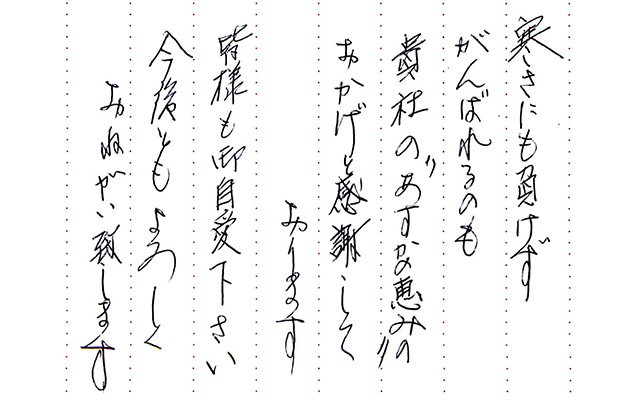 寒さにも負けず
がんばれるのも
貴社の〝あすかの恵み〟の
おかげと感謝して
おります
皆様も御自愛下さい
今後ともよろしく
おねがい致します